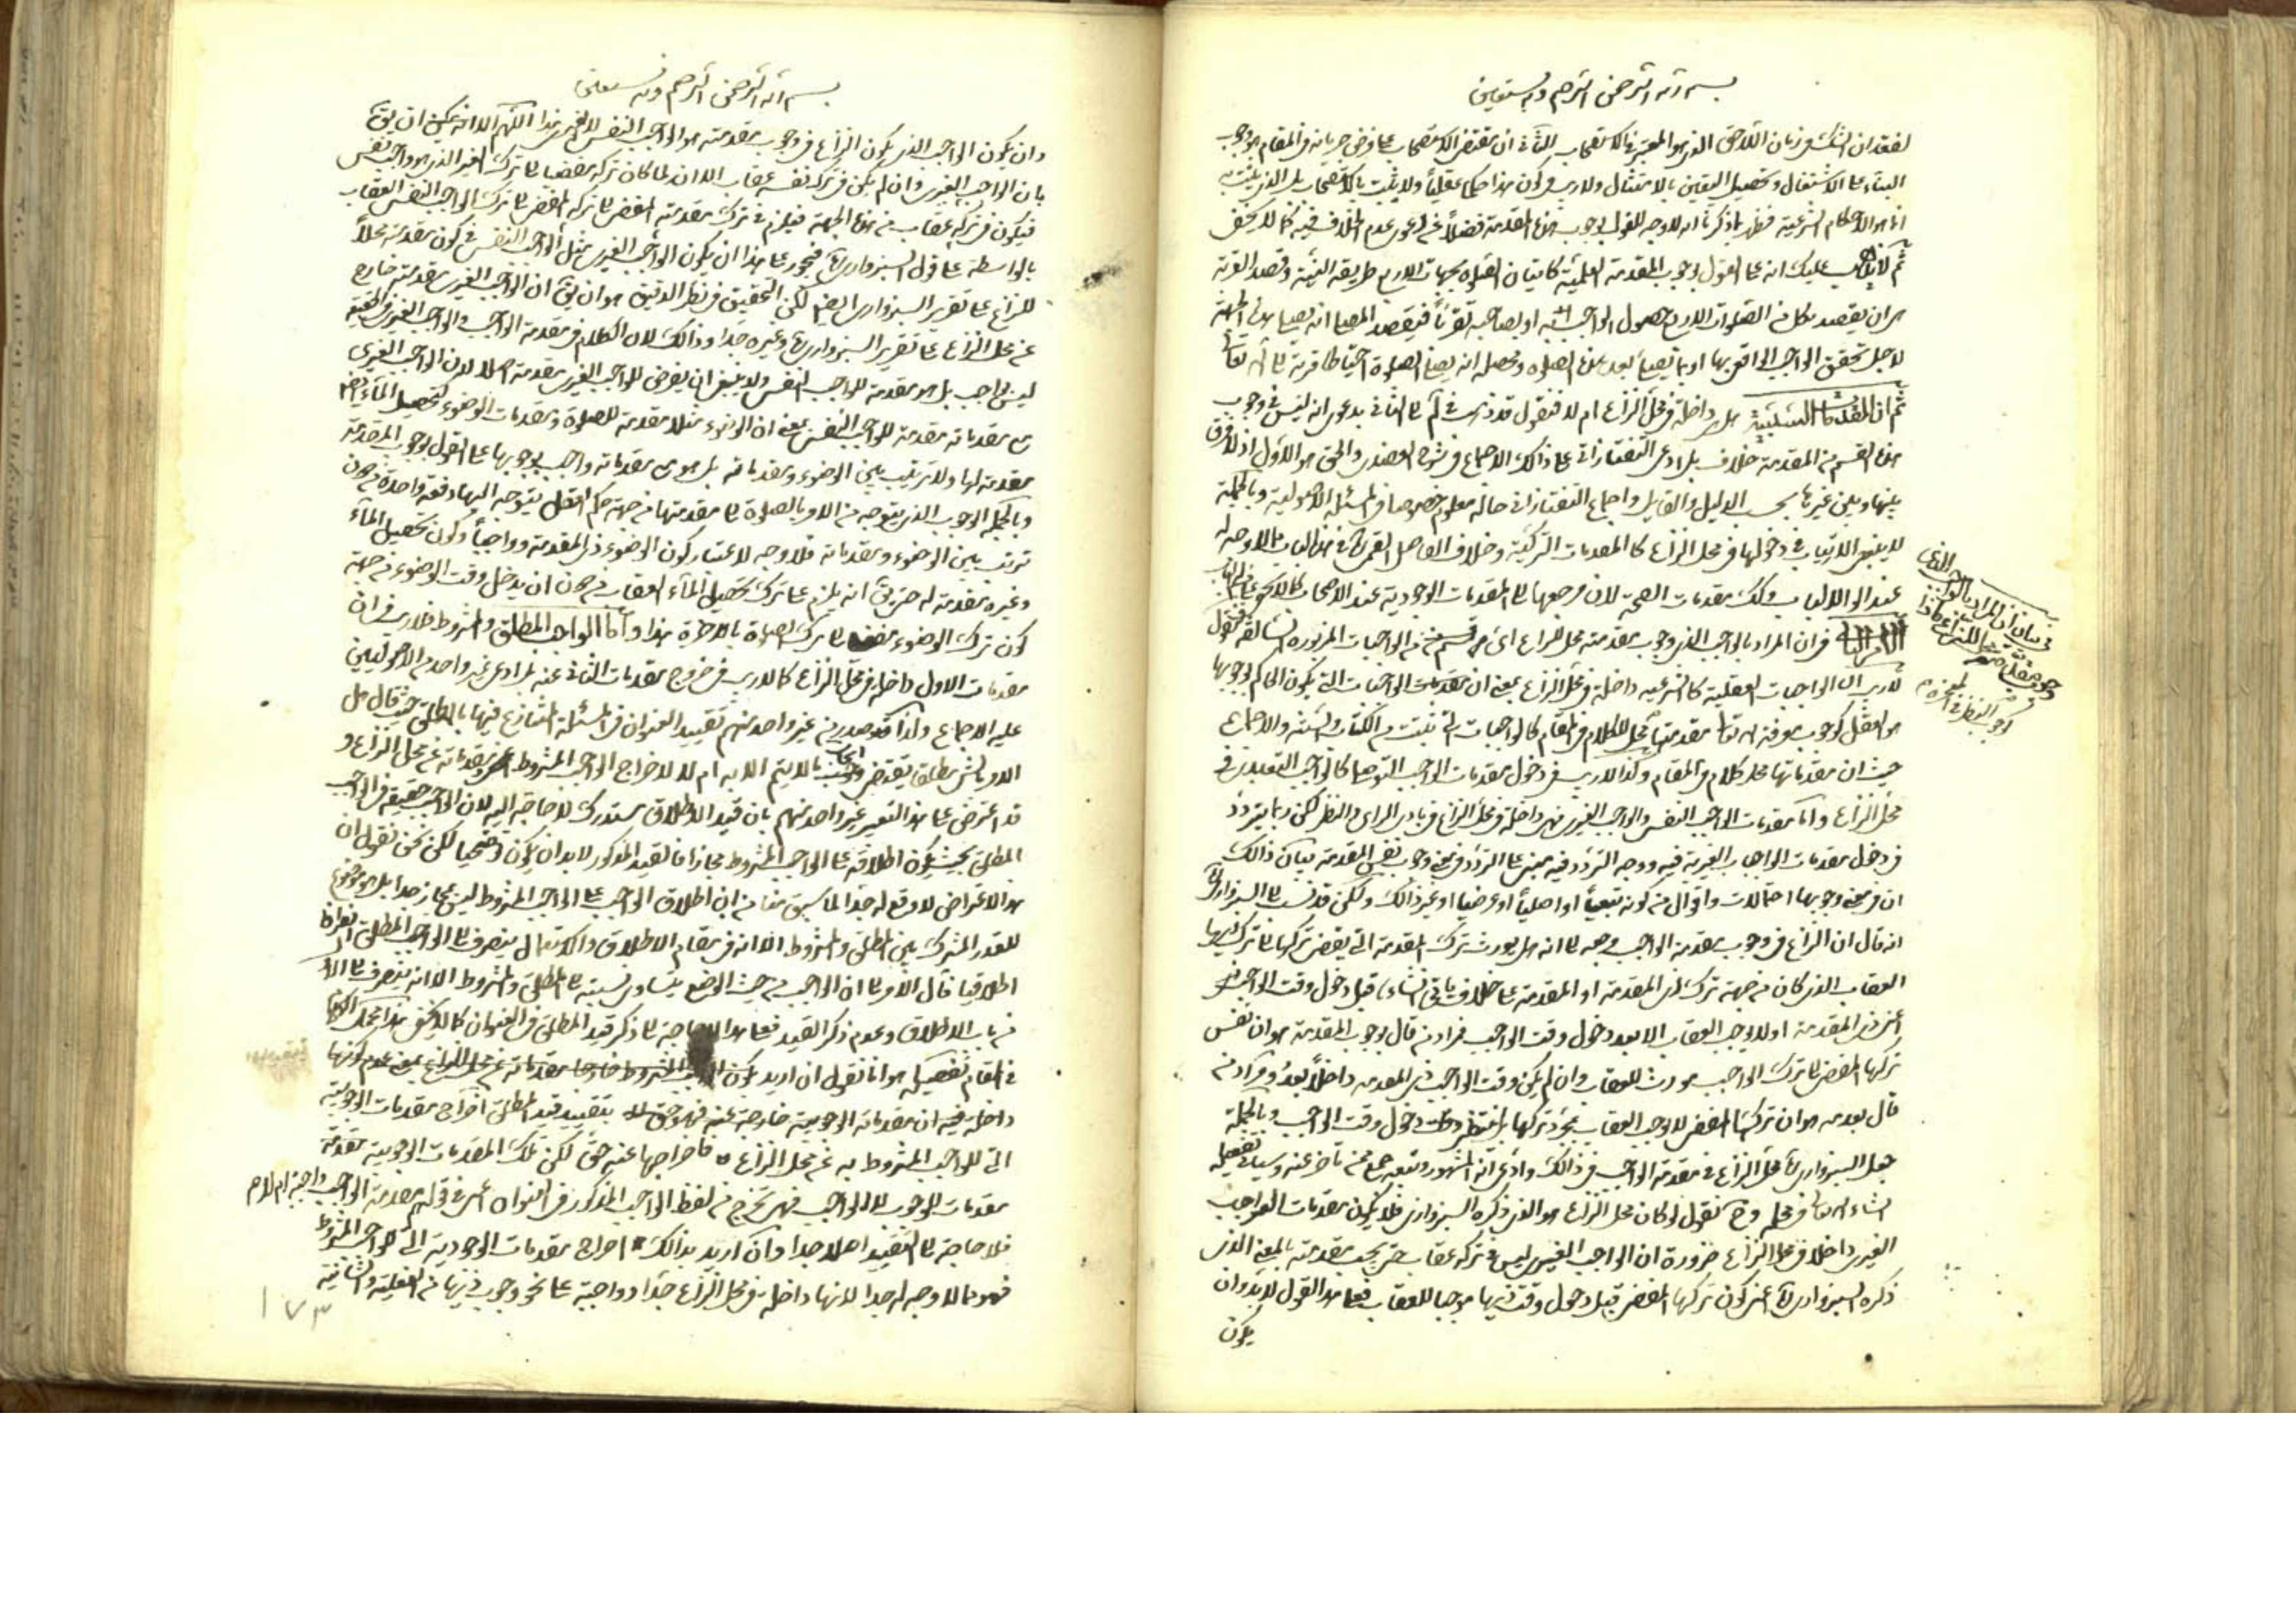 بسم الله الرحمن الرحيم وبه نستعين
لفقدان الشك في زمان اللاحق الذي هو المعتبر في الاستصحاب الثاني ان مقتضى الاستصحاب على فرض جريانه في المقام هو وجوب
البناء على الاشتغال وتحصيل اليقين بالامتثال ولا ريب في كون هذا حكما عقليا ولا يثبت بالاستصحاب بل الذي يثبت به
انما هو الاحكام الشرعية فظهر بما ذكرنا انه لا وجه للقول بوجوب هذه المقدمة فضلا عن دعوى عدم الخلاف فيه كما لا يخفى
ثم لا يذهب عليك انه على القول بوجوب المقدمة العلمية كاتيان الصلوة بجهات الاربع طريقه النية وقصد القربة
هو ان يقصد بكل من الصلوات الاربع حصول الواجب به او بصاحبه تقربا فيقصد المصلي انه يصلي هذه الجهة
لاجل تحقق الواجب الواقعي بها او بما يصلي بعد هذه الصلوة ومحصله انه يصلي الصلوة احتياطا قربة الى الله تعالى
ثم ان المقدمات السببية هل هي داخلة في محل النزاع ام لا فنقول قد ذهب الى الثاني بدعوى انه ليس في وجوب
هذا القسم من المقدمة خلاف بل ادعى التفتازاني على ذلك الاجماع في شرح العضدي والحق هو الاول اذ لا فرق
بينها وبين غيرها بحسب الدليل والقايل واجماع التفتازاني حاله معلوم خصوصا في المسئلة الاصولية وبالجملة
لا ينبغي الارتياب في دخولها في محل النزاع كالمقدمات التركية وخلاف الفاضل القمي في هذا الباب مما لا وجه له
عند اولي الالباب وكذلك مقدمات الصحة لان مرجعها الى المقدمات الوجودية عند الاصحاب كما لا يخفى
في ان المراد بالواجب الذي وجوب مقدمته محل للنزاع اي قسم من الواجبات المزبورة السابقة فنقول
لا ريب ان الواجبات العقلية كالشرعية داخلة في محل النزاع بمعنى ان مقدمات الواجبات التي يكون الحاكم بوجوبها
هو العقل كوجوب معرفة الله تعالى مقدمتها محل للكلام في المقام كالواجبات التي تثبت من الكتاب والسنة والاجماع
حيث ان مقدماتها محل كلام في المقام وكذا لا ريب في دخول مقدمات الواجب التوصلي كالواجب التعبدي في
محل النزاع واما مقدمات الواجب النفسي والواجب الغيري فهي داخلة في محل النزاع في بادي الراي والنظر لكن ربما يتردد
في دخول مقدمات الواجب الغيرية فيه ووجه التردد فيه مبني على التردد في معنى وجوب نفس المقدمة بيان ذلك
ان في معنى وجوبها احتمالات واقوال من كونه تبعيا او اصليا او عرضيا او غير ذلك ولكن قد نسب الى السبزواري
انه قال ان النزاع في وجوب مقدمة الواجب مرجعه الى انه هل يورث ترك المقدمة التي يفضي تركها الى ترك ذيها
العقاب الذي كان من جهة ترك ذي المقدمة او المقدمة على خلاف ياتي انشاء الله قبل دخول وقت الواجب
اعني ذي المقدمة او لا يوجب العقاب الا بعد دخول وقت الواجب فمراد من قال بوجوب المقدمة هو ان نفس
تركها المفضي الى ترك الواجب مورث للعقاب وان لم يكن وقت الواجب ذي المقدمة داخلا بعد ومراد من
قال بعدمه هو ان تركها المفضي لا يوجب العقاب بمجرد تركها بل ينتظر دخول وقت الواجب وبالجملة
جعل السبزواري محل النزاع في مقدمة الواجب في ذلك وادعى انه المشهور وتبعه جمع ممن تاخر عنه وسياتي تفصيله
انشاء الله تعالى في محله وح نقول لو كان محل النزاع هو الذي ذكره السبزواري فلا يكون مقدمات الواجب
الغيري داخلا في محل النزاع ضرورة ان الواجب الغيري ليس في تركه عقاب حتى يجب مقدمته بالمعنى الذي
ذكره السبزواري اعني كون تركها المفضي قبل دخول وقت ذيها موجبا للعقاب فعلى هذا القول لا بد وان
يكون
في بيان ان المراد بالواجب الذي
وجوب مقدمته محل للنزاع ماذا
بسم الله الرحمن الرحيم وبه نستعين
وان يكون الواجب الذي يكون النزاع في وجوب مقدمته هو الواجب النفسي لا الغيري هذا اللهم الا انه يمكن ان يق
بان الواجب الغيري وان لم يكن في تركه نفسه عقاب الا انه لما كان تركه مفضيا الى ترك الغير الذي هو واجب نفسي
فيكون في تركه عقاب من هذه الجهة فيلزم في ترك مقدمته المفضي الى تركه المفضي الى ترك الواجب النفسي العقاب
بالواسطة على قول السبزواري فيجوز على هذا ان يكون الواجب الغيري مثل الواجب النفسي في كون مقدمته محلا
للنزاع على تقرير السبزواري ايضا لكن التحقيق في نظر الدقيق هو ان يق ان الواجب الغيري مقدمته خارج
عن محل النزاع على تقرير السبزواري وغيره جدا وذلك لان الكلام في مقدمة الواجب والواجب الغيري في الحقيقة
ليس بواجب بل هو مقدمة للواجب النفسي ولا ينبغي ان يفرض للواجب الغيري مقدمة اصلا لان الواجب الغيري
مقدماته مقدمة للواجب النفسي بمعنى ان الوضوء مثلا مقدمة للصلوة ومقدمات الوضوء كتحصيل الماء ايضا
مقدمة لها ولا ترتيب بين الوضوء ومقدماته بل هو مقدماته واجب بوجوبها على القول بوجوب المقدمة
وبالجملة الوجوب الذي يتوجه من الامر بالصلوة الى مقدمتها من جهة حكم العقل يتوجه اليها دفعة واحدة من دون
ترتب بين الوضوء ومقدماته فلا وجه لاعتبار كون الوضوء ذي المقدمة وواجبا وكون تحصيل الماء
وغيره مقدمة له حتى يق انه يلزم على ترك تحصيل الماء العقاب من دون ان يدخل وقت الوضوء من جهة
كون ترك الوضوء مفض الى ترك الصلوة بالاخرة هذا واما الواجب المطلق والمشروط فلا ريب في ان
مقدمات الاول داخلة في محل النزاع كما لا ريب في خروج مقدمات الثاني عنه بل ادعى غير واحد من الاصوليين
عليه الاجماع ولذا قد صدر من غير واحد منهم تقييد العنوان في المسئلة المتنازع فيها بالمطلق حيث قال هل
الامر بالشيء مطلقا يقتضي ايجاب ما لا يتم الا به ام لا لاخراج الواجب المشروط مقدماته عن محل النزاع و
قد اعترض على هذا التعبير غير واحد منهم بان قيد الاطلاق مستدرك لا حاجة اليه لان الواجب حقيقة في الواجب
المطلق بحيث يكون اطلاقه على الواجب المشروط مجازا فالقيد المذكور لا بد ان يكون توضيحيا لكن نحن نقول ان
هذا الاعتراض لا وقع له جدا لما سبق منا من ان اطلاق الواجب على الواجب المشروط ليس بمجاز جدا بل هو موضوع
للقدر المشترك بين المطلق والمشروط الا انه في مقام الاطلاق والاستعمال ينصرف الى الواجب المطلق انصرافا
اطلاقيا فآل الامر الى ان الواجب من حيث الوضع يتساوى نسبته الى المطلق والمشروط الا انه ينصرف الى الاول
من باب الاطلاق وعدم ذكر القيد فعلى هذا لا حاجة الى ذكر قيد المطلق في العنوان كما لا يخفى هذا محصل الكلام
في المقام تفصيله هو انا نقول ان اريد بكون الواجب المشروط خارجا مقدماته عن محل النزاع بمعنى عدم كونها
داخلة فيه ان مقدماته الوجوبية خارجة عنه فهو حق بتقييد قيد المطلق اخراج مقدمات الوجوبية
التي للواجب المشروط به عن محل النزاع فاخراجها عنه حق لكن تلك المقدمات الوجوبية مقدمة
مقدمات للوجوب لا الواجب فهي تخرج من لفظ الواجب المذكور في العنوان اعني في قولهم مقدمة الواجب واجبة ام لا
فلا حاجة الى التقييد اصلا جدا وان اريد بذلك اخراج مقدمات الوجودية التي للواجب المشروط
فهو مما لا وجه له جدا لانها داخلة في محل النزاع جدا وواجبة على نحو وجوب ذيها من الفعلية والشانية
١٧٣